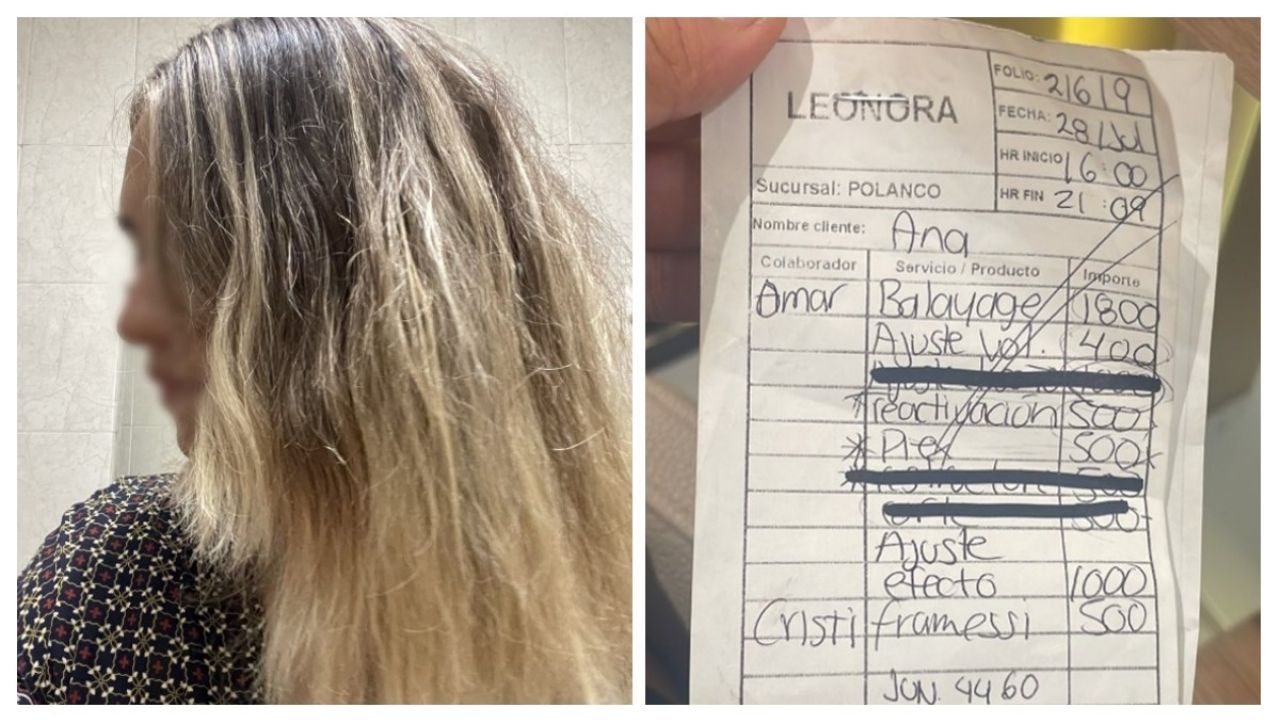 LEONORA
FOLIO: 21619
FECHA: 28/Jul
HR INICIO 16:00
HR FIN 21:09
Sucursal: POLANCO
Nombre cliente: Ana
Colaborador Servicio / Producto Importe
Omar Balayage 1800
Ajuste vol. 400
*reactivacion 500
* Plex 500
500
500
Ajuste
efecto 1000
Cristi framessi 500
JUN. 4460